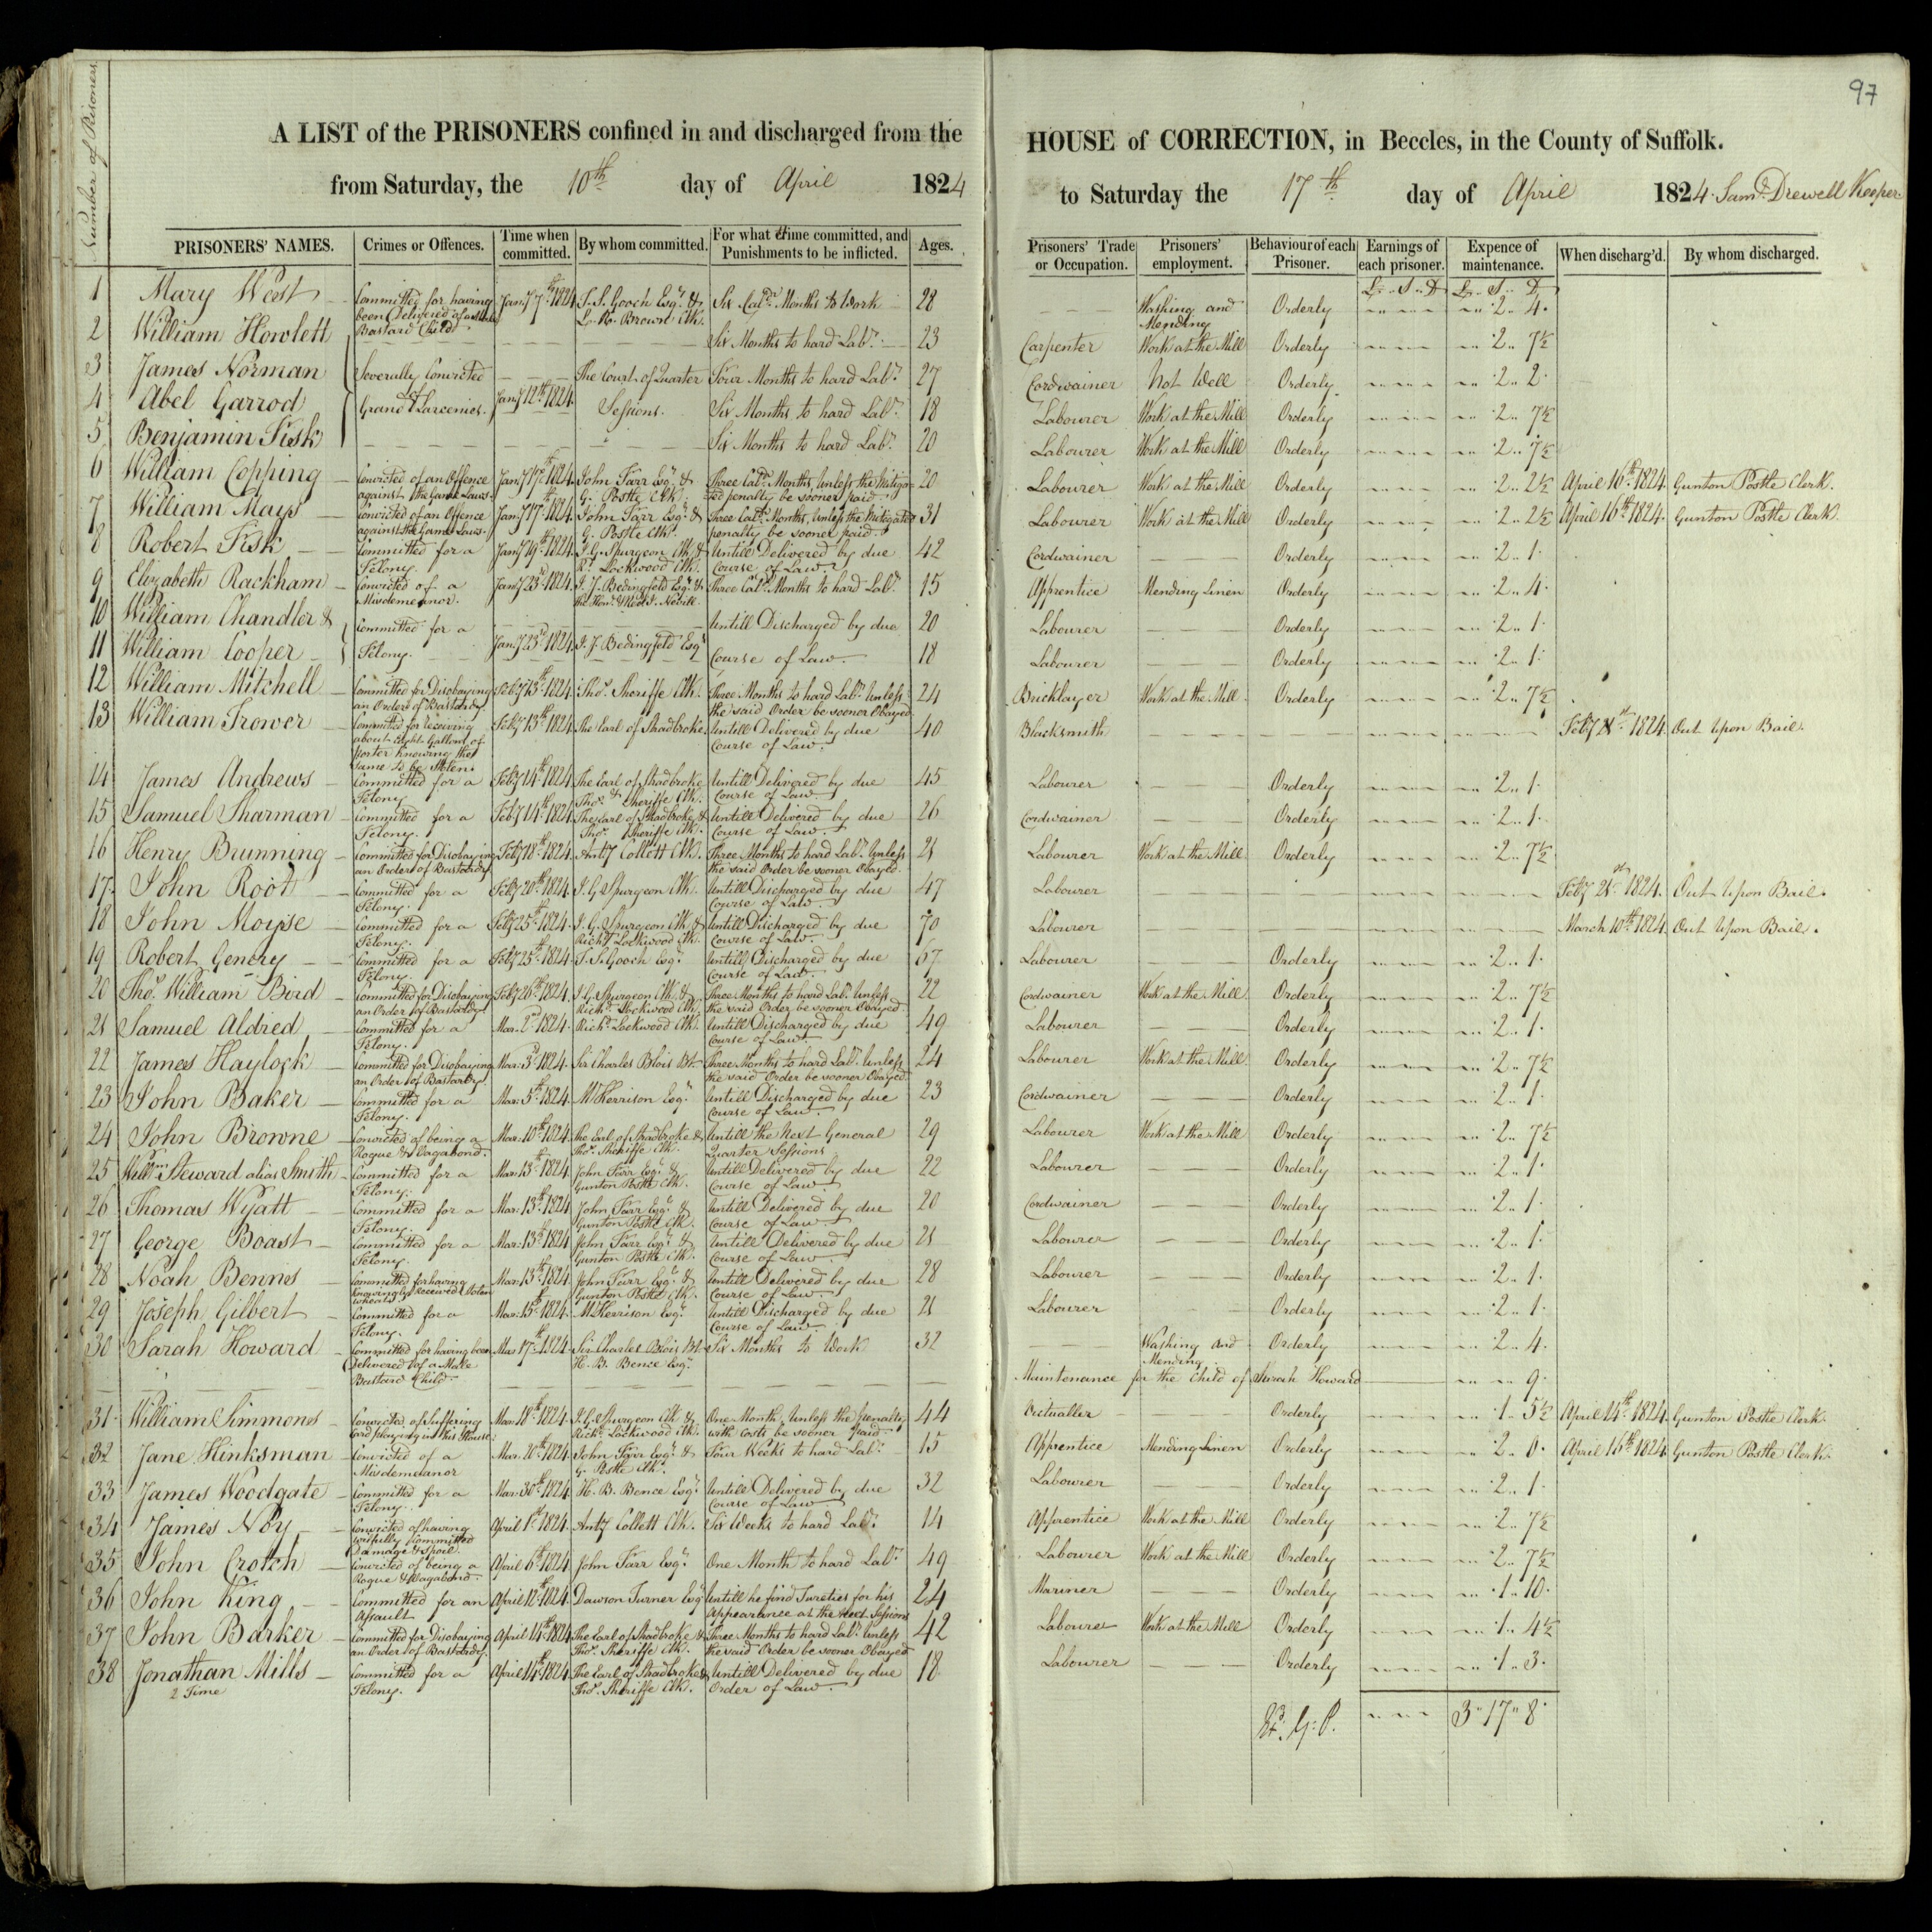 97
Number of Prisoners
A LIST of the PRISONERS confined in and discharged from the HOUSE of CORRECTION, in Beccles, in the County of Suffolk.
from Saturday, the 10th day of April 1824 to Saturday the 17th day of April 1824. Saml. Drewell Keeper
PRISONERS' NAMES. Crimes or Offences. Time when committed. By whom committed. For what Crime committed, and Punishments to be inflicted. Ages. Prisoners' Trade or Occupation. Prisoners' employment. Behaviour of each Prisoner. Earnings of each prisoner. Expence of maintenance. When discharg'd. By whom discharged.
L. S. D L. S. D
1 Mary West Committed for having been Delivered of a Bastard Child Jany 7th 1824 T. S. Gooch Esqr. & L. R. Brown Clk. Six Calr. Months to Work 28 Washing and Mending Orderly 2 4
2 William Howlett Six Months to hard Labr. 23 Carpenter Work at the Mill Orderly 2 7½
3 James Norman Severally Convicted The Court of Quarter Four Months to hard Labr. 27 Cordwainer Not Well Orderly 2 2
4 Abel Garrod of Grand Larcenies. Jany 12th 1824. Sessions. Six Months to hard Labr. 18 Labourer Work at the Mill Orderly 2 7½
5 Benjamin Fisk Six Months to hard Labr. 20 Labourer Work at the Mill Orderly 2 7½
6 William Copping Convicted of an Offence against the Game Laws. Jany 17th 1824. John Farr Esqr. & G. Postle Clk. Three Calr. Months Unless the Mitigated penalty be sooner paid. 20 Labourer Work at the Mill Orderly 2 2½ April 16th 1824. Gunton Postle Clerk.
7 William Mays Convicted of an Offence against the Game Laws. Jany 17th 1824. John Farr Esqr. & G. Postle Clk. Three Calr. Months, Unless the Mitigated penalty be sooner paid. 31 Labourer Work at the Mill Orderly 2 2½ April 16th 1824. Gunton Postle Clerk.
8 Robert Fisk Committed for a Felony. Jany 19th 1824. J. G. Spurgeon Clk & Rd. Lockwood Clk. Untill Delivered by due Course of Law. 42 Cordwainer Orderly 2 1
9 Elizabeth Rackham Convicted of a Misdemeanor. Jany 23d 1824. J. J. Bedingfeld Esqr. & the Honr. & Revd. Nevill. Three Calr. Months to hard Labr. 15 Apprentice Mending Linen Orderly 2 4
10 William Chandler & Committed for a Untill Discharged by due 20 Labourer Orderly 2 1
11 William Cooper Felony. Jany 23d 1824. J. J. Bedingfeld Esqr Course of Law. 18 Labourer Orderly 2 1
12 William Mitchell Committed for Disobaying an Order of Bastardy. Feby 13th 1824. Thos. Sheriffe Clk. Three Months to hard Labr. Unless the said Order be sooner Obayed. 24 Bricklayer Work at the Mill Orderly 2 7½
13 William Trower Committed for receiving about eight Gallons of Porter Knowing the same to be Stolen. Feby 13th 1824. The Earl of Stradbroke. Untill Delivered by due Course of Law. 40 Blacksmith Feby 1824. Out Upon Bail.
14 James Andrews Committed for a Felony. Feby 14th 1824. The Earl of Stradbroke & Thos. Sheriffe Clk. Untill Delivered by due Course of Law. 45 Labourer Orderly 2 1
15 Samuel Sharman Committed for a Felony. Feby 14th 1824. The Earl of Stradbroke & Thos. Sheriffe Clk. Untill Delivered by due Course of Law. 26 Cordwainer Orderly 2 1
16 Henry Brunning Committed for Disobaying an Order of Bastardy. Feby 18th 1824. Anty Collett Clk. Three Months to hard Labr. Unless the said Order be sooner Obayed. 21 Labourer Work at the Mill Orderly 2 7½
17 John Root Committed for a Felony. Feby 20th 1824. J. G. Spurgeon Clk. Untill Discharged by due Course of Law. 47 Labourer Feby 21st 1824. Out Upon Bail.
18 John Moyse Committed for a Felony. Feby 25th 1824. J. G. Spurgeon Clk & Richd. Lockwood Clk. Untill Discharged by due Course of Law. 70 Labourer March 10th 1824. Out Upon Bail.
19 Robert Gentry Committed for a Felony. Feby 25th 1824 T. S. Gooch Esqr. Untill Discharged by due Course of Law. 67 Labourer Orderly 2 1
20 Thos. William Bird Committed for Disobaying an Order of Bastardy. Feby 26th 1824. J. G. Spurgeon Clk. & Richd. Lockwood Clk. Three Months to hard Labr. Unless the said Order be sooner Obayed. 22 Cordwainer Work at the Mill Orderly 2 7½
21 Samuel Aldred Committed for a Felony. Mar. 2d 1824. Richd. Lockwood Clk. Untill Discharged by due Course of Law. 49 Labourer Orderly 2 1
22 James Haylock Committed for Disobaying an Order of Bastardy. Mar. 3d 1824. Sir Charles Blois Bt. Three Months to hard Labr. Unless the said Order be sooner Obayed. 24 Labourer Work at the Mill Orderly 2 7½
23 John Baker Committed for a Felony. Mar. 5th 1824. M. Kerrison Esqr. Untill Discharged by due Course of Law. 23 Cordwainer Orderly 2 1
24 John Browne Convicted of being a Rogue & Vagabond. Mar. 10th 1824. The Earl of Stradbroke & Thos. Sheriffe Clk. Untill the Next General Quarter Sessions 29 Labourer Work at the Mill Orderly 2 7½
25 Willm. Steward alias Smith Committed for a Felony. Mar. 13th 1824 John Farr Esqr. & Gunton Postle Clk. Untill Delivered by due Course of Law. 22 Labourer Orderly 2 1
26 Thomas Wyatt Committed for a Felony. Mar. 13th 1824 John Farr Esqr. & Gunton Postle Clk. Untill Delivered by due Course of Law. 20 Cordwainer Orderly 2 1
27 George Boast Committed for a Felony. Mar. 13th 1824 John Farr Esqr. & Gunton Postle Clk. Untill Delivered by due Course of Law. 21 Labourer Orderly 2 1
28 Noah Bennes Committed for having knowingly received Stolen wheat. Mar. 13th 1824 John Farr Esqr. & Gunton Postle Clk. Untill Delivered by due Course of Law. 28 Labourer Orderly 2 1
29 Joseph Gilbert Committed for a Felony. Mar. 15th 1824. M. Kerrison Esqr. Untill Discharged by due Course of Law. 21 Labourer Orderly 2 1
30 Sarah Howard Committed for having been Delivered of a Male Bastard Child. Mar. 17th 1824. Sir Charles Blois Bt. H. B. Bence Esqr. Six Months to Work 32 Washing and Mending Orderly 2 4
Maintenance for the Child of Sarah Howard 9
31 William Simmons Convicted of Suffering Card playing in his House. Mar. 18th 1824. J. G. Spurgeon Clk & Richd. Lockwood Clk. One Month Unless the penalty with Costs be sooner paid. 44 Victualler Orderly 1 5½ April 14th 1824. Gunton Postle Clerk.
32 Jane Hinksman Convicted of a Misdemeanor Mar. 20th 1824. John Farr Esqr. & G. Postle Clk. Four Weeks to hard Labr. 15 Apprentice Mending Linen Orderly 2 0 April 16th 1824 Gunton Postle Clerk.
33 James Woodgate Committed for a Felony. Mar. 30th 1824. H. B. Bence Esqr. Untill Delivered by due Course of Law. 32 Labourer Orderly 2 1
34 James Noy Convicted of having wilfully Committed Damage & Spoil. April 1st 1824. Anty Collett Clk. Six Weeks to hard Labr. 14 Apprentice Work at the Mill Orderly 2 7½
35 John Crotch Convicted of being a Rogue & Vagabond. April 6th 1824 John Farr Esqr. One Month to hard Labr. 49 Labourer Work at the Mill Orderly 2 7½
36 John King Committed for an Assault. April 12th 1824. Dawson Turner Esqr Untill he find Sureties for his Appearance at the next Sessions 24 Mariner Orderly 1 10
37 John Barker Committed for Disobaying an Order of Bastardy. April 14th 1824 The Earl of Stradbroke & Thos. Sheriffe Clk. Three Months to hard Labr. Unless the said Order be sooner Obayed 42 Labourer Work at the Mill Orderly 1 4½
38 Jonathan Mills 2 Time Committed for a Felony. April 14th 1824 The Earl of Stradbroke & Thos. Sheriffe Clk. Untill Delivered by due Order of Law. 18 Labourer Orderly 1 3
G. P. 3 17 8